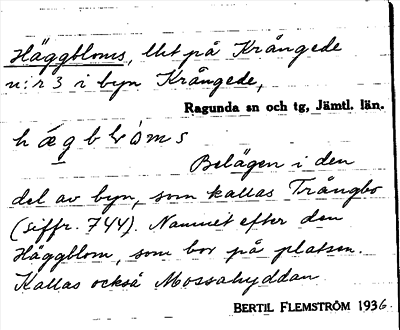 Häggbloms, lht på Krångede
n:r 3 i byn Krångede,
Ragunda sn och tg, Jämtl. län.
Belägen i den
del av byn, som kallas Trångbo
(siffr. 744). Namnet efter den
Häggblom, som bor på platsen.
Kallas också Mossahyddan
BERTIL FLEMSTRÖM 1936